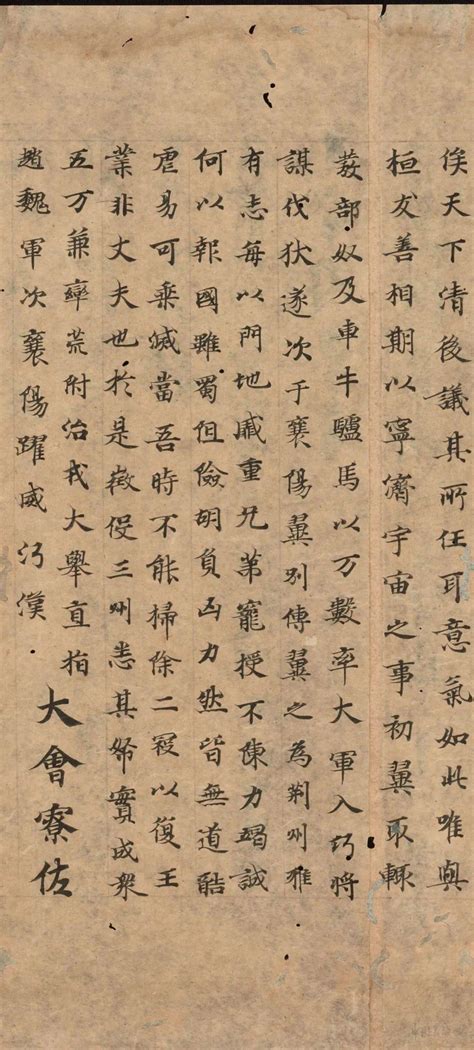 俟天下清後議其所任耳意氣如此唯與
桓友善相期以寧濟宇宙之事初翼取輙
發部奴及車牛驢馬以万數率大軍入沔將
謀伐狄遂次于襄陽翼別傳翼之為荊州雅
有志每以門地威重兄弟寵授不陳力竭誠
何以報國雖蜀但險胡負凶力然皆無道酷
虐易可乘滅當吾時不能掃除二寇以復王
業非丈夫也於是徵役三州悉其帑實成衆
五万兼率荒附治戎大舉直指
趙魏軍次襄陽躍威沔漢
大會寮佐